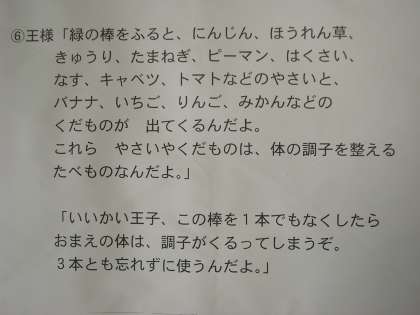 ⑥王様「緑の棒をふると、にんじん、ほうれん草、
きゅうり、たまねぎ、ピーマン、はくさい、
なす、キャベツ、トマトなどのやさいと、
バナナ、いちご、りんご、みかんなどの
くだものが　出てくるんだよ。
これら　やさいやくだものは、体の調子を整える
たべものなんだよ。」
「いいかい王子、この棒を１本でもなくしたら
おまえの体は、調子がくるってしまうぞ。
３本とも忘れずに使うんだよ。」